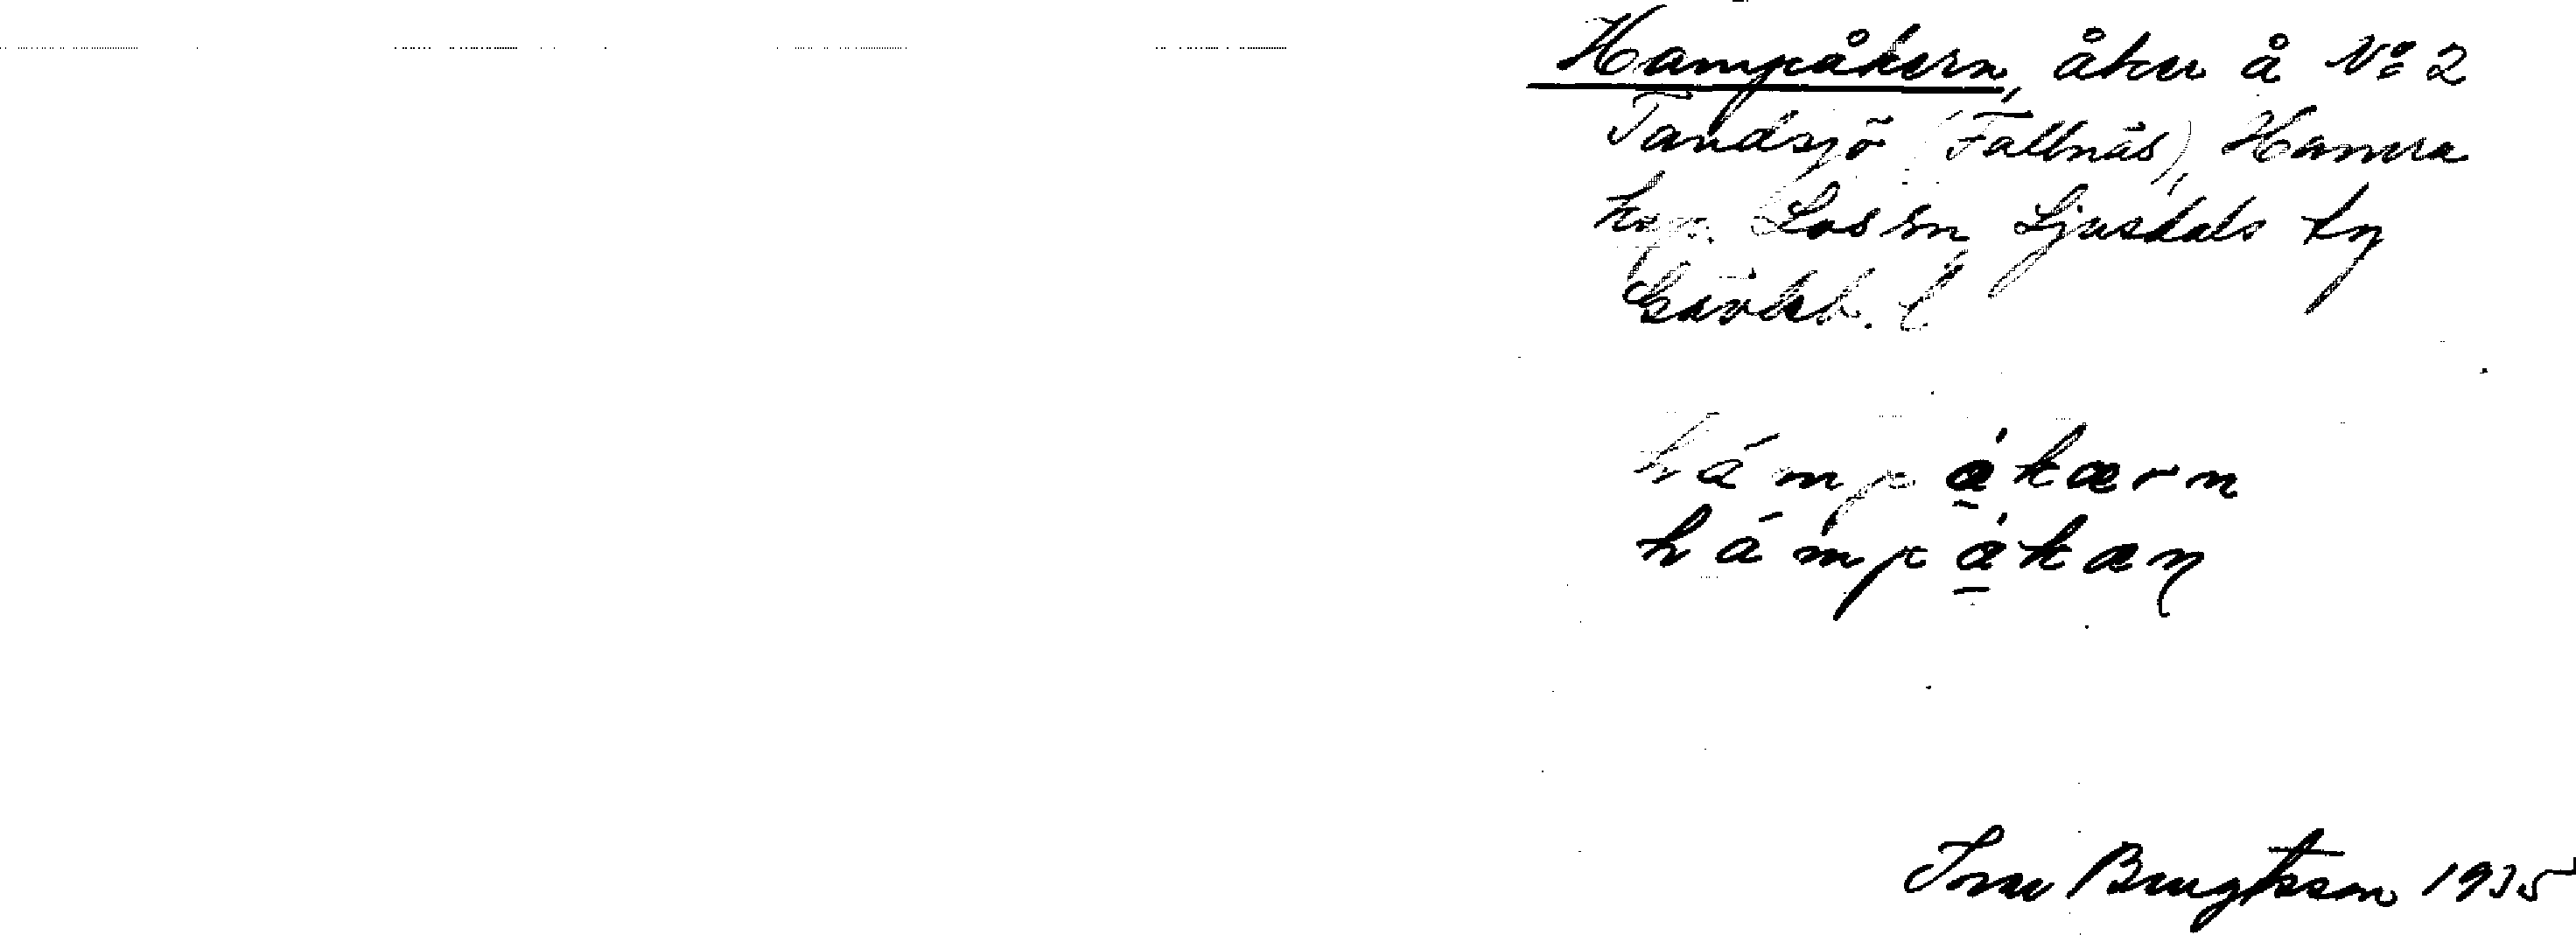 Hampåkern, åker å No 2
Tandsjö (Fallnäs), Hamra
kap. Los sn, Ljusdals tg
Gävleb. l
hámpåkærn
hámpåkæn
Ivar Bengtsson 1935